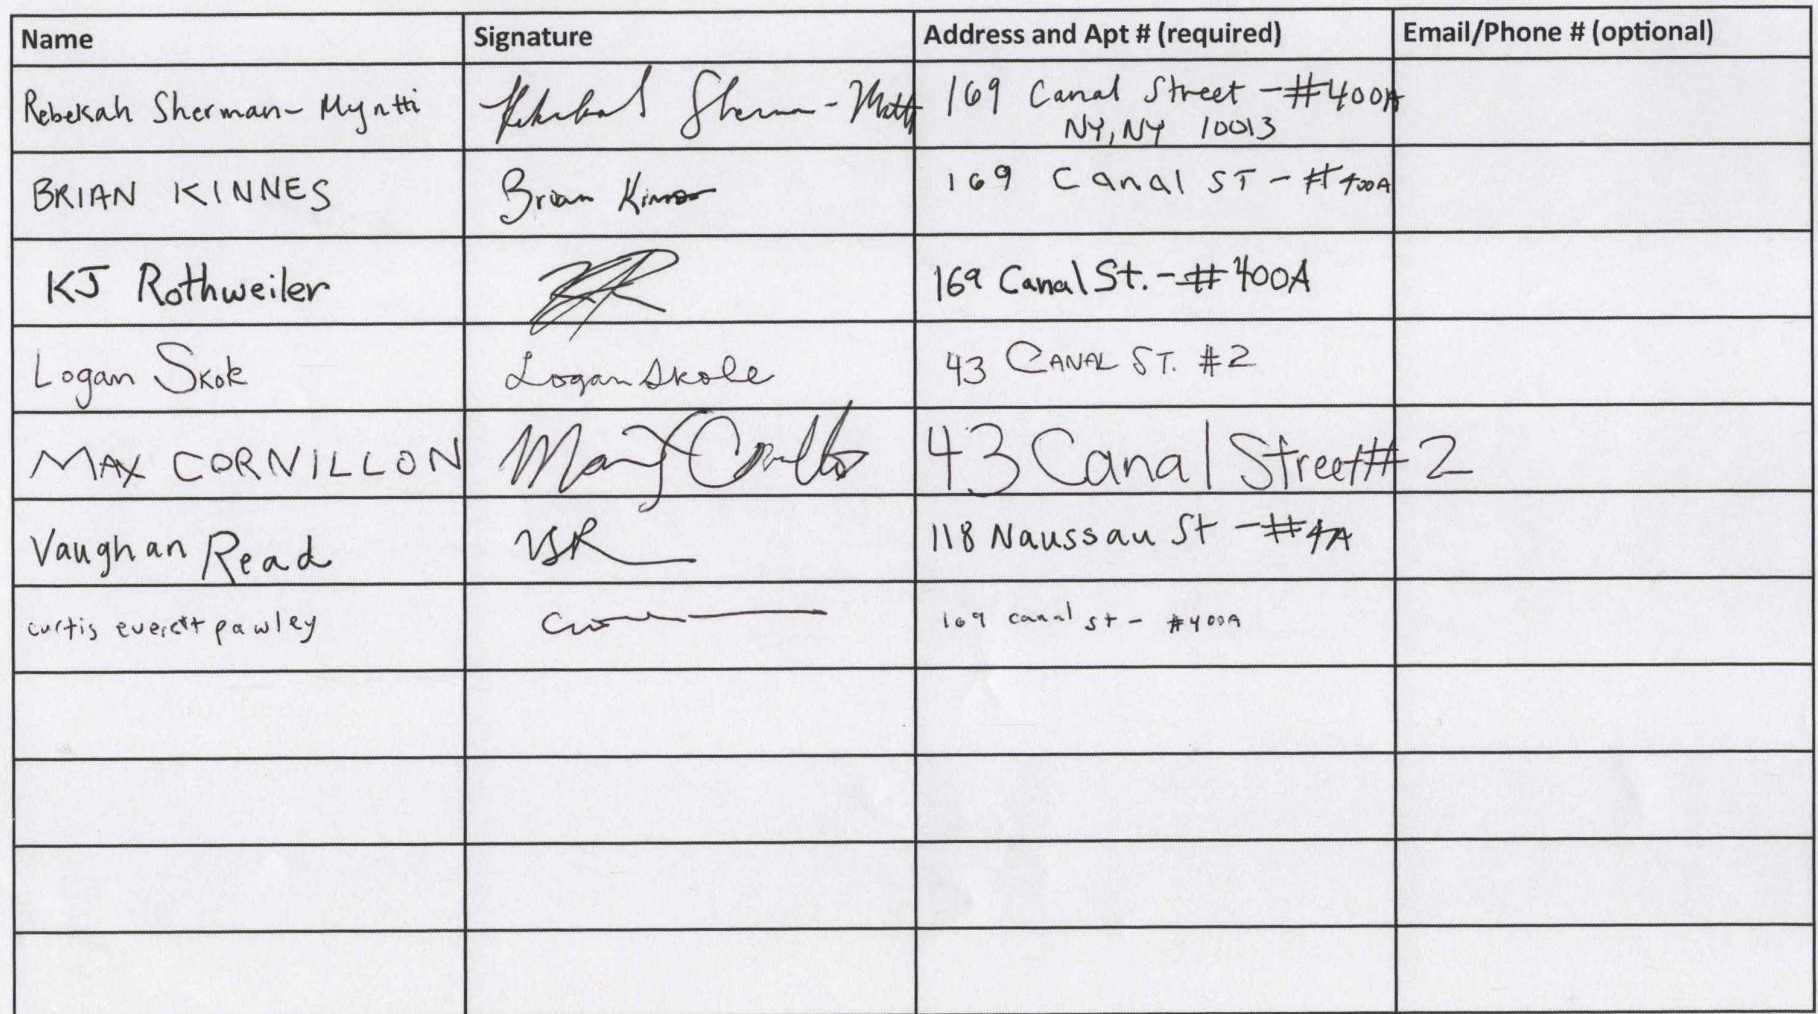 Name Signature Address and Apt # (required) Email/Phone # (optional)
Rebekah Sherman-Myntti 169 Canal Street - #400A
NY, NY 10013
BRIAN KINNES Brian Kinnes 169 Canal ST - #400A
KJ Rothweiler 169 Canal St. - #400A
Logan Skole Logan Skole 43 CANAL ST. #2
MAX CORNILLON 43 Canal Street #2
Vaughan Read VSR 118 Naussau St - #4A
curtis everett pawley 169 canal st - #400A